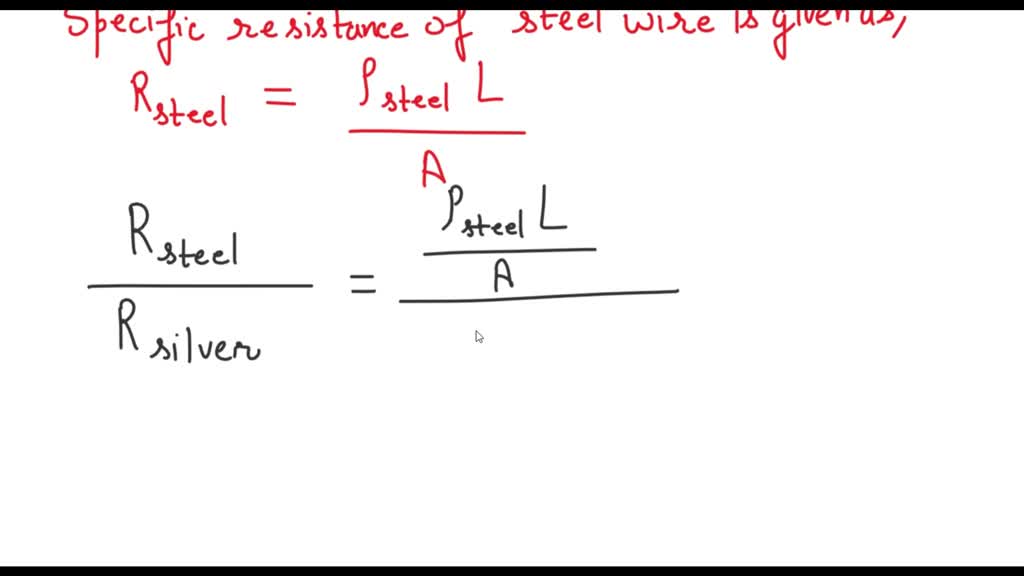 Specific resistance of steel wire is given as,
R steel = ρ steel L
A
R steel = ρ steel L
A
R silver